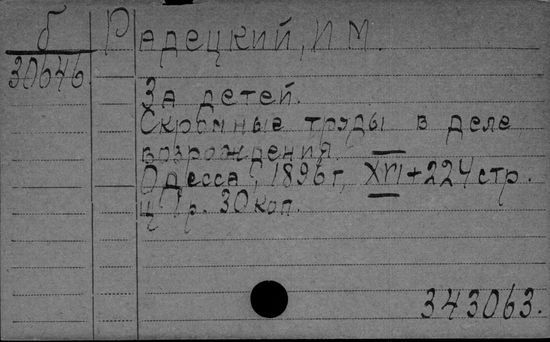 б Радецкий, И М.
30646
За детей.
Скромные труды в деле
возрождения.
Одесса, 1896г, XVI+224стр.
ц 1р. 30 коп.
343063.